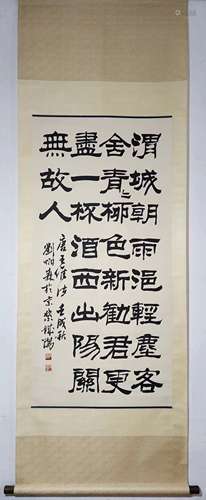 渭城朝雨浥輕塵客
舍青〻柳色新勸君更
盡一杯酒西出陽關
無故人
唐王維诗 壬戌秋
劉炳森於京